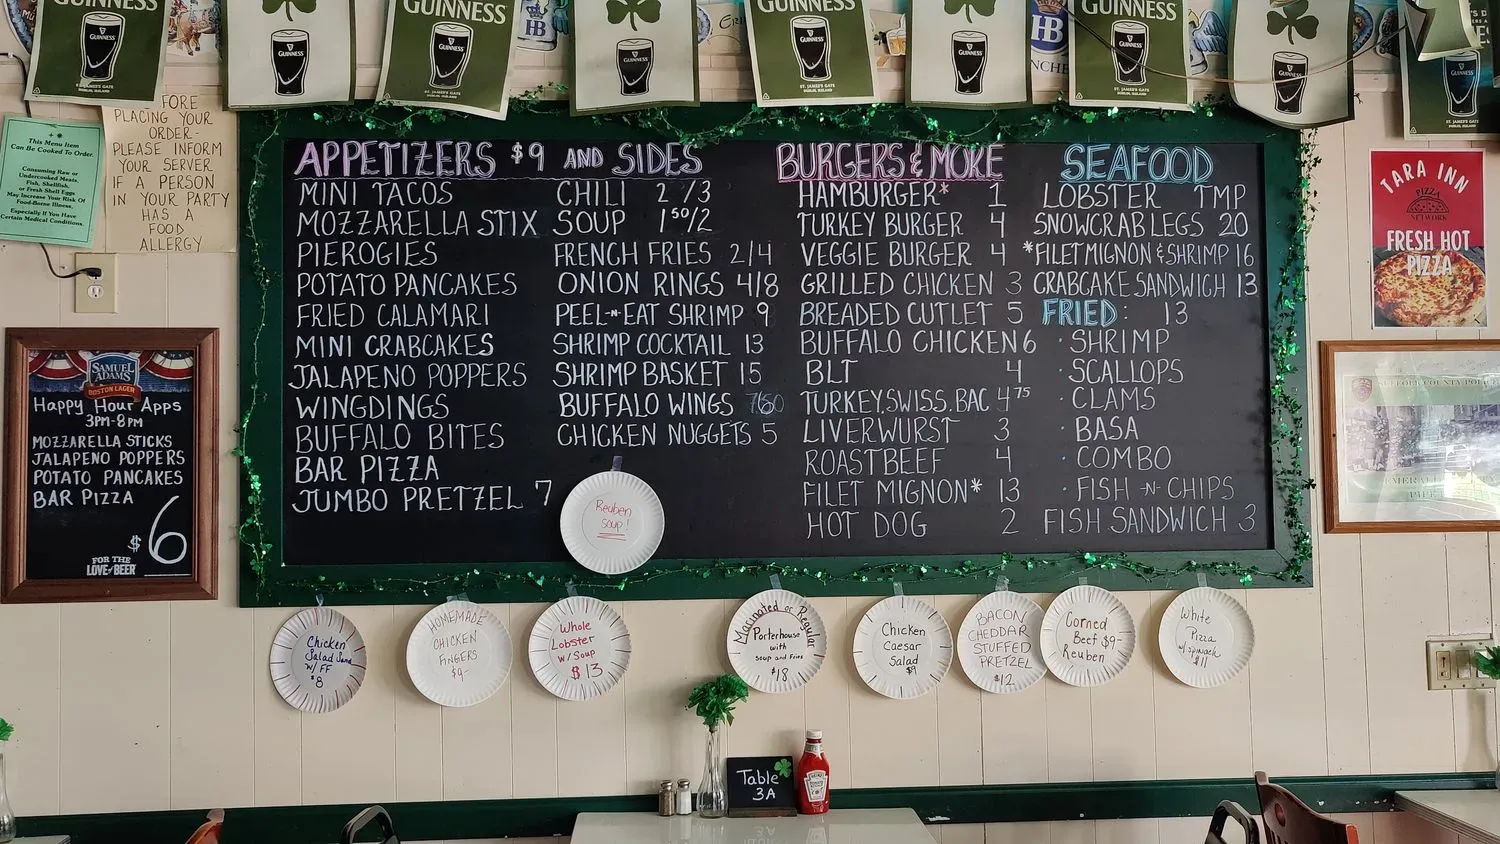 GUINNESS
GUINNESS
ST. JAMES'S GATE
DUBLIN, IRELAND
GUINNESS
GUINNESS
GUINNESS
ST. JAMES'S GATE
DUBLIN, IRELAND
HB
GUINNESS
GUINNESS
GUINNESS
ST. JAMES'S GATE
DUBLIN, IRELAND
GUINNESS
HB
GUINNESS
GUINNESS
ST. JAMES'S GATE
DUBLIN, IRELAND
GUINNESS
This Menu Item
Can Be Cooked To Order.
Consuming Raw or
Undercooked Meats,
Fish, Shellfish,
or Fresh Shell Eggs
May Increase Your Risk Of
Food-Borne Illness,
Especially If You Have
Certain Medical Conditions.
FORE
PLACING YOUR
ORDER-
PLEASE INFORM
YOUR SERVER
IF A PERSON
IN YOUR PARTY
HAS A
FOOD
ALLERGY
SAMUEL
ADAMS
BOSTON LAGER
Happy Hour Apps
3PM-8PM
MOZZARELLA STICKS
JALAPENO POPPERS
POTATO PANCAKES
BAR PIZZA
$6
FOR THE
LOVE OF BEER
APPETIZERS $9 AND SIDES
MINI TACOS
MOZZARELLA STIX
PIEROGIES
POTATO PANCAKES
FRIED CALAMARI
MINI CRABCAKES
JALAPENO POPPERS
WINGDINGS
BUFFALO BITES
BAR PIZZA
JUMBO PRETZEL 7
CHILI 2/3
SOUP 1⁵⁰/2
FRENCH FRIES 2/4
ONION RINGS 4/8
PEEL-N-EAT SHRIMP 9
SHRIMP COCKTAIL 13
SHRIMP BASKET 15
BUFFALO WINGS
CHICKEN NUGGETS 5
Reuben
soup!
BURGERS & MORE
HAMBURGER* 1
TURKEY BURGER 4
VEGGIE BURGER 4
GRILLED CHICKEN 3
BREADED CUTLET 5
BUFFALO CHICKEN 6
BLT 4
TURKEY.SWISS.BAC 4⁷⁵
LIVERWURST 3
ROAST BEEF 4
FILET MIGNON* 13
HOT DOG 2
SEAFOOD
LOBSTER TMP
SNOWCRAB LEGS 20
*FILET MIGNON & SHRIMP 16
CRABCAKE SANDWICH 13
FRIED: 13
· SHRIMP
· SCALLOPS
· CLAMS
· BASA
· COMBO
· FISH -N- CHIPS
FISH SANDWICH 3
TARA INN
PIZZA
NETWORK
FRESH HOT
PIZZA
Chicken
Salad Sand
w/ FF
$8
HOMEMADE
CHICKEN
FINGERS
$9-
Whole
Lobster
w/ Soup
$13
Marinated or Regular
Porterhouse
with
soup and Fries
$18
Chicken
Caesar
Salad
$9
BACON
CHEDDAR
STUFFED
PRETZEL
$12
Corned
Beef $9-
Reuben
White
Pizza
w/ spinach
$11
Table
3A
HEINZ